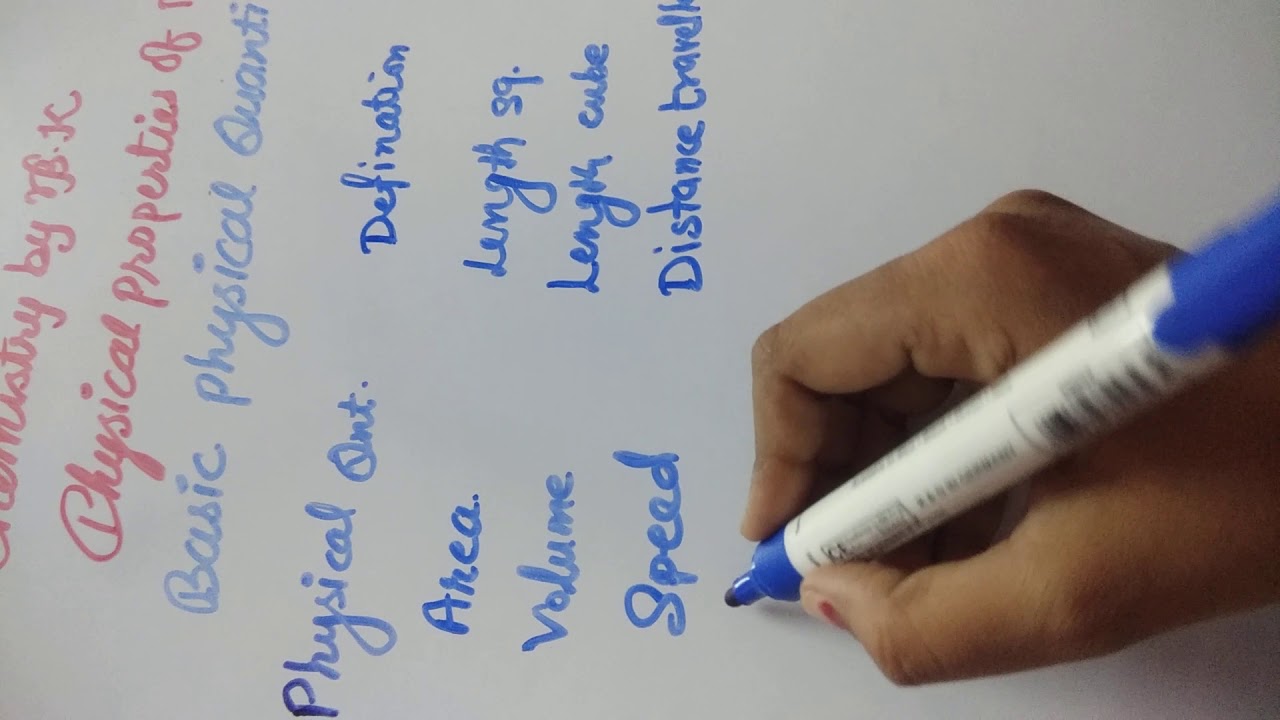 by B.K
Physical Properties of
Basic Physical
Physical Qnt. Defination
Area. Length sq.
Volume Length cube
Speed Distance